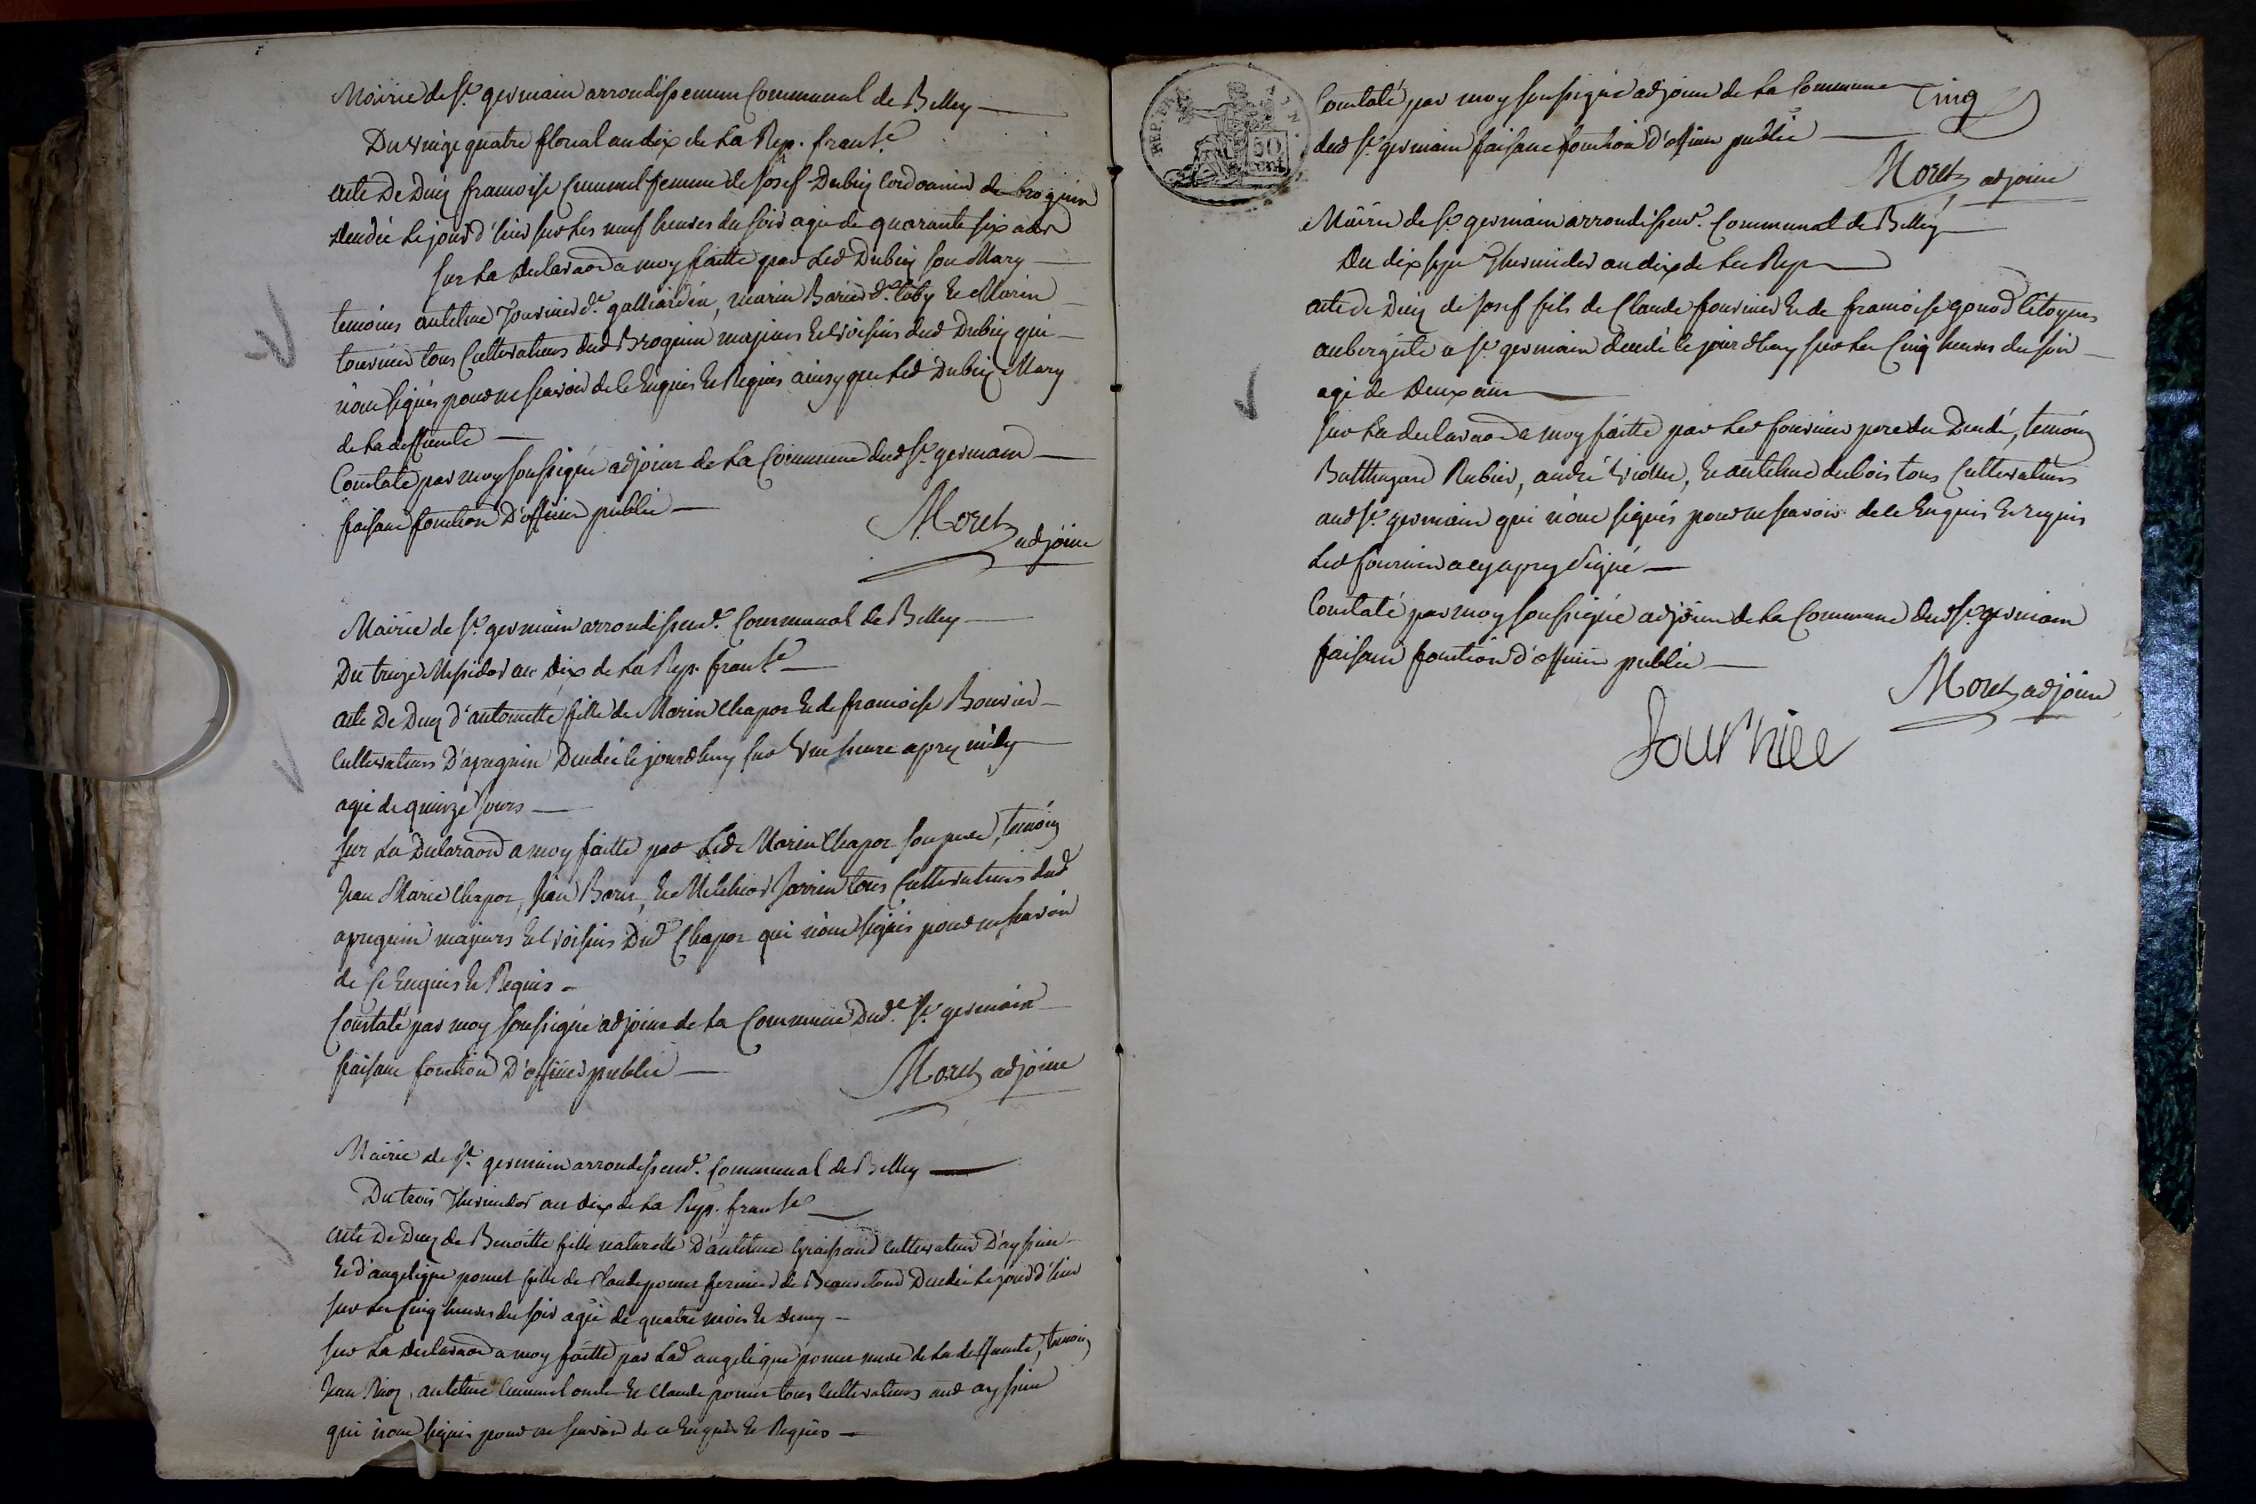 Mairie de St. germain arrondissement Communal de Belley
Du vingt quatre floreal an dix de La Rep. franse
acte De Deces francoise Cummel femme de Josef Dubiez Cordonnier de brognin
decedée Le jour d'hier sur Les neuf heures du soir agée de quarante six ans
sur La declaraon a moy faitte par Led Dubiez son Mary
temoins antelme Tournier dt galliardin, marin Borier dt toby et Marin
tournier tous Cultivateurs dud Brognin majeurs et voisins dud Dubiez qui
n'ont signés pour ne scavoir de ce Enquis et Requis ainsy que Led Dubiez Mary
de La deffuncte
Constaté par moy soussigné adjoint de La Commune dud St. germain
faisant fonction D'officier public
Moret adjoint
Mairie de St. germain arrondissemt. Communal de Belley
Du treize Messidor an dix de La Rep. franse
acte De Deces d'antoinette fille de Marin Chapot et de francoise Bouvier
Cultivateurs D'apregnin Decedée le jourdhuy sur Une heure apres midy
agée de quinze Jours
Sur La Declaraon a moy faitte par Led Marin Chapot son pere, temoins
Jean Marie Chapot, Jean Borier, et Melchior Jarrin tous Cultivateurs dud
apregnin majeurs et voisins Dud Chapot qui n'ont signés pour ne scavoir
de Ce Enquis et Requis
Constaté par moy soussigné adjoint de La Commune Dud. St. germain
faisant fonction D'officier public
Moret adjoint
Mairie de St. germain arrondissemt. Communal de Belley
Du trois Thermidor an dix de La Rep. franse
acte De Deces de Benoitte fille naturelle D'antelme Cultivateur D'
et d'angelique ponet fille de Claude ponet fermier de Decedée Le jour d'hier
sur Les Cinq heures du soir agée de quatre mois et demy
sur La declaraon a moy faitte par Lad angelique ponet mere de La deffuncte, temoins
Jean antelme Cummel et Claude ponet tous Cultivateurs aud
qui n'ont signés pour ne scavoir de ce Enquis et Requis
Cinq
REP. FRAN.
50
CENT.
Constaté par moy soussigné adjoint de La Commune
dud St. germain faisant fonction d'officier public
Moret adjoint
Mairie de St. germain arrondissemt. Communal de Belley
Du dix sept Thermidor an dix de La Rep
acte de Deces de Josef fils de Claude fournier et de francoise gonod Citoyens
aubergiste a St. germain decedé le jourdhuy sur Les Cinq heures du soir
agé de Deux ans
sur La declaraon a moy faitte par Led fournier pere du Decedé, temoins
Balthazard Rubier, andré, et antelme dubois tous Cultivateurs
aud St. germain qui n'ont signés pour ne scavoir de ce Enquis et requis
Led fournier a cy apres signé
Constaté par moy soussigné adjoint de La Commune dud St. germain
faisant fonction d'officier public
Moret adjoint
fournier